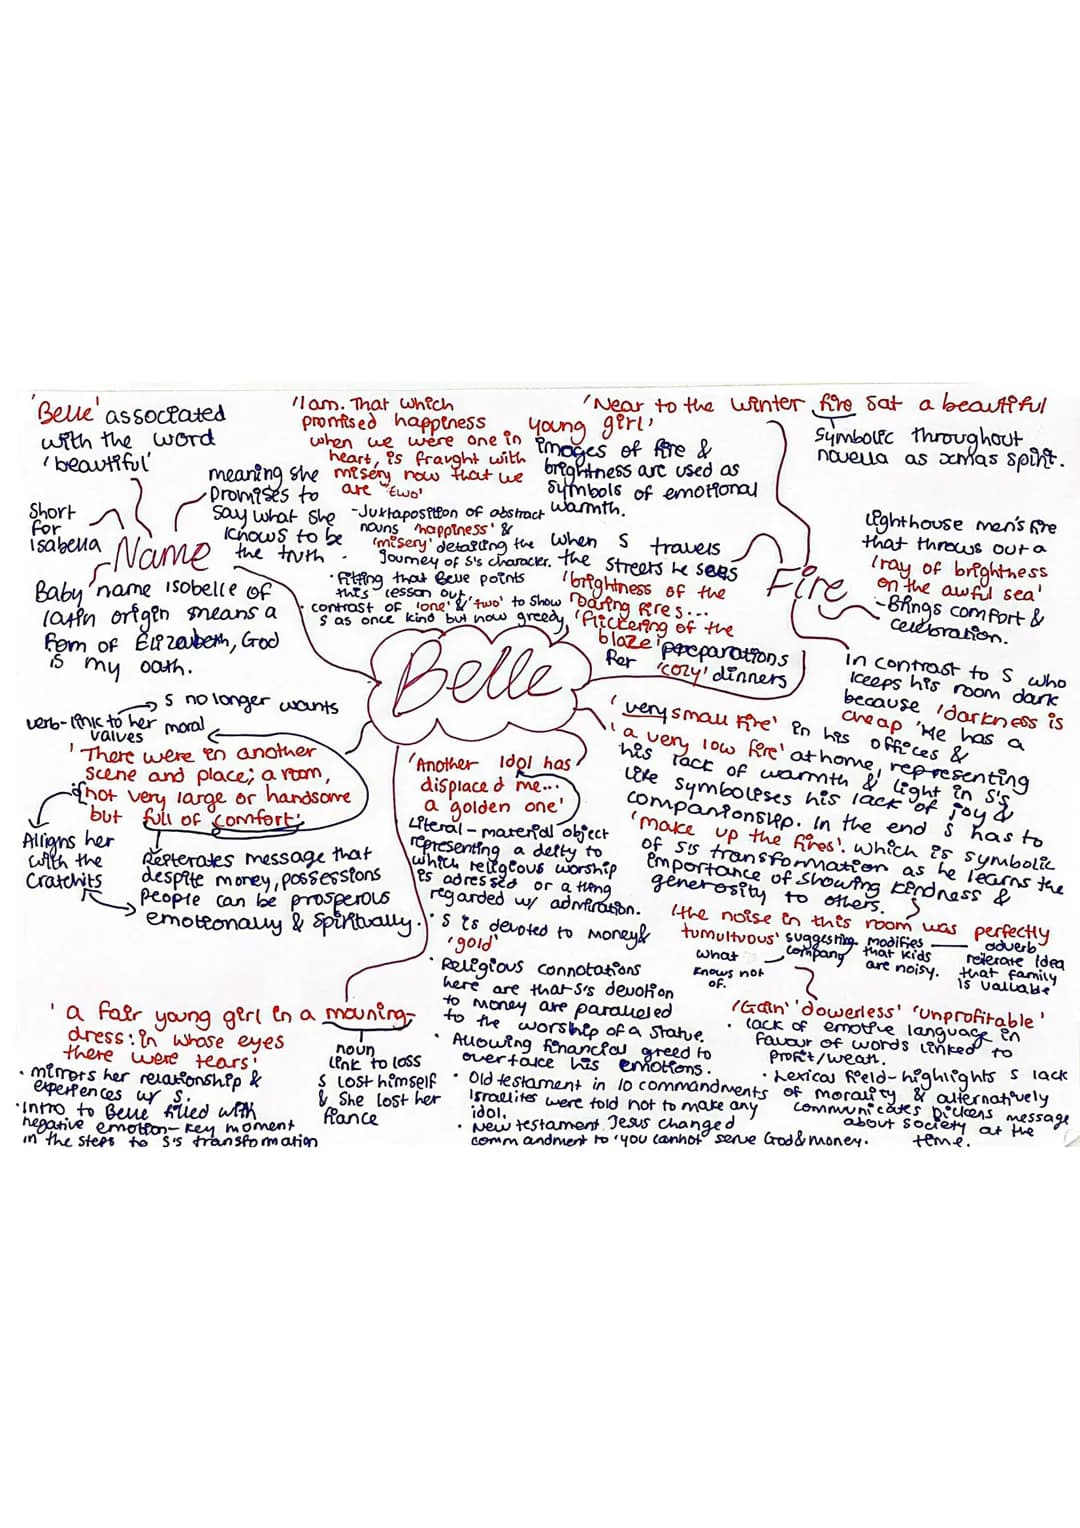 'Belle' associated
with the word
'beautiful'
meaning she
promises to
say what she
knows to be
the truth.
Short
for
Isabella
Name
Baby name Isobelle of
latin origin means a
form of Elizabeth, God
is my oath.
'I am. That which
promised happiness
when we were one in
heart, is fraught with
misery now that we
are 'two'
-Juxtaposition of abstract
nouns 'happiness' &
'misery' detailing the
journey of S's character.
• Fitting that Belle points
this lesson out,
• contrast of 'one' & 'two' to show
S as once kind but now greedy.
'Near to the winter fire sat a beautiful
young girl'
Symbolic throughout
novella as xmas spirit.
images of fire &
brightness are used as
symbols of emotional
warmth.
when S travels
the streets he sees
'brightness of the
roaring fires...
'flickering of the
blaze' preparations
for 'cozy' dinners
Fire
Lighthouse men's fire
that throws out a
'ray of brightness
on the awful sea'
-Brings comfort &
celebration.
In contrast to S who
keeps his room dark
because 'darkness is
cheap' He has a
'very small fire' in his offices &
'a very low fire' at home, representing
his lack of warmth & light in S's
life symbolises his lack of joy &
companionship. In the end S has to
'make up the fires'. which is symbolic
of S's transformation as he learns the
importance of showing kindness &
generosity to others.
Belle
S no longer wants
verb-link to her moral
values
'There were in another
scene and place; a room,
not very large or handsome
but full of comfort'.
Aligns her
with the
Cratchits
Reiterates message that
despite money, possessions
people can be prosperous
emotionally & spiritually.
'Another idol has
displaced me...
a golden one'
Literal - material object
representing a deity to
which religious worship
is adressed or a thing
regarded w/ admiration.
• S is devoted to money &
'gold'
• Religious connotations
here are that S's devotion
to money are paralleled
to the worship of a statue.
• Allowing financial greed to
overtake his emotions.
• Old testament in 10 commandments
Israelites were told not to make any
idol.
• New testament Jesus changed
commandment to 'you cannot serve God & money.
'the noise in this room was perfectly
tumultuous'
suggesting
company
what
S
knows not
of.
modifies
that kids
are noisy.
adverb
reiterate idea
that family
is valuable
'Gain' 'dowerless' 'unprofitable'
• lack of emotive language in
favour of words linked to
profit/wealth.
• Lexical field-highlights S lack
of morality & alternatively
communicates Dickens message
about society at the
time.
'a fair young girl in a mouning-
dress: in whose eyes
there were tears'
• mirrors her relationship &
experiences w/ S.
• Intro to Belle filled with
negative emotion - key moment
in the steps to S's transformation
noun
link to loss
S lost himself
& she lost her
fiance